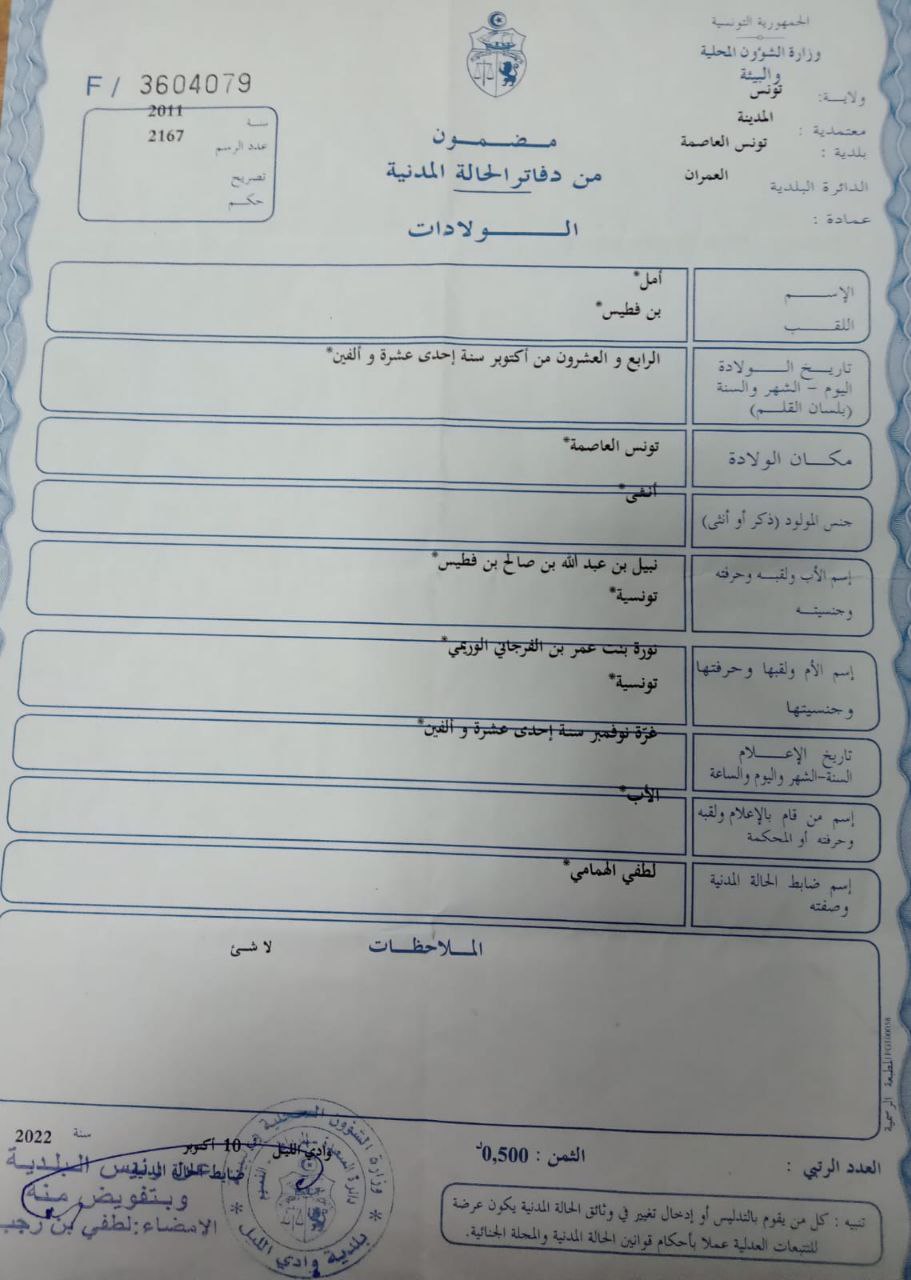 الجمهورية التونسية
وزارة الشؤون المحلية
والبيئة
ولاية: تونس
معتمدية : المدينة
بلدية : تونس العاصمة
الدائرة البلدية العمران
عمادة :
F / 3604079
سنة 2011
عدد الرسم 2167
تصريح
حكم
مضمون
من دفاتر الحالة المدنية
الولادات
الإسم أمل*
اللقب بن فطيس*
تاريخ الولادة الرابع و العشرون من أكتوبر سنة إحدى عشرة و ألفين*
اليوم - الشهر والسنة
(بلسان القلم)
مكان الولادة تونس العاصمة*
جنس المولود (ذكر أو أنثى) أنثى*
إسم الأب ولقبه وحرفته نبيل بن عبد الله بن صالح بن فطيس*
وجنسيته تونسية*
إسم الأم ولقبها وحرفتها نورة بنت عمر بن الفرجاني الوريمي*
وجنسيتها تونسية*
تاريخ الإعلام غرّة نوفمبر سنة إحدى عشرة و ألفين*
السنة-الشهر واليوم والساعة
إسم من قام بالإعلام ولقبه الأب*
وحرفته أو المحكمة
إسم ضابط الحالة المدنية لطفي الهمامي*
وصفته
الملاحظات لا شئ
المطبعة الرسمية
العدد الرتبي :
الثمن : 0,500د
وادي الليل 10 أكتوبر سنة 2022
ضابط الحالة المدنية
عن رئيس البلدية
وبتفويض منه
الامضاء: لطفي بن رجب
وزارة الشؤون المحلية
بلدية وادي الليل
تنبيه : كل من يقوم بالتدليس أو إدخال تغيير في وثائق الحالة المدنية يكون عرضة
للتتبعات العدلية عملا بأحكام قوانين الحالة المدنية والمجلة الجنائية.